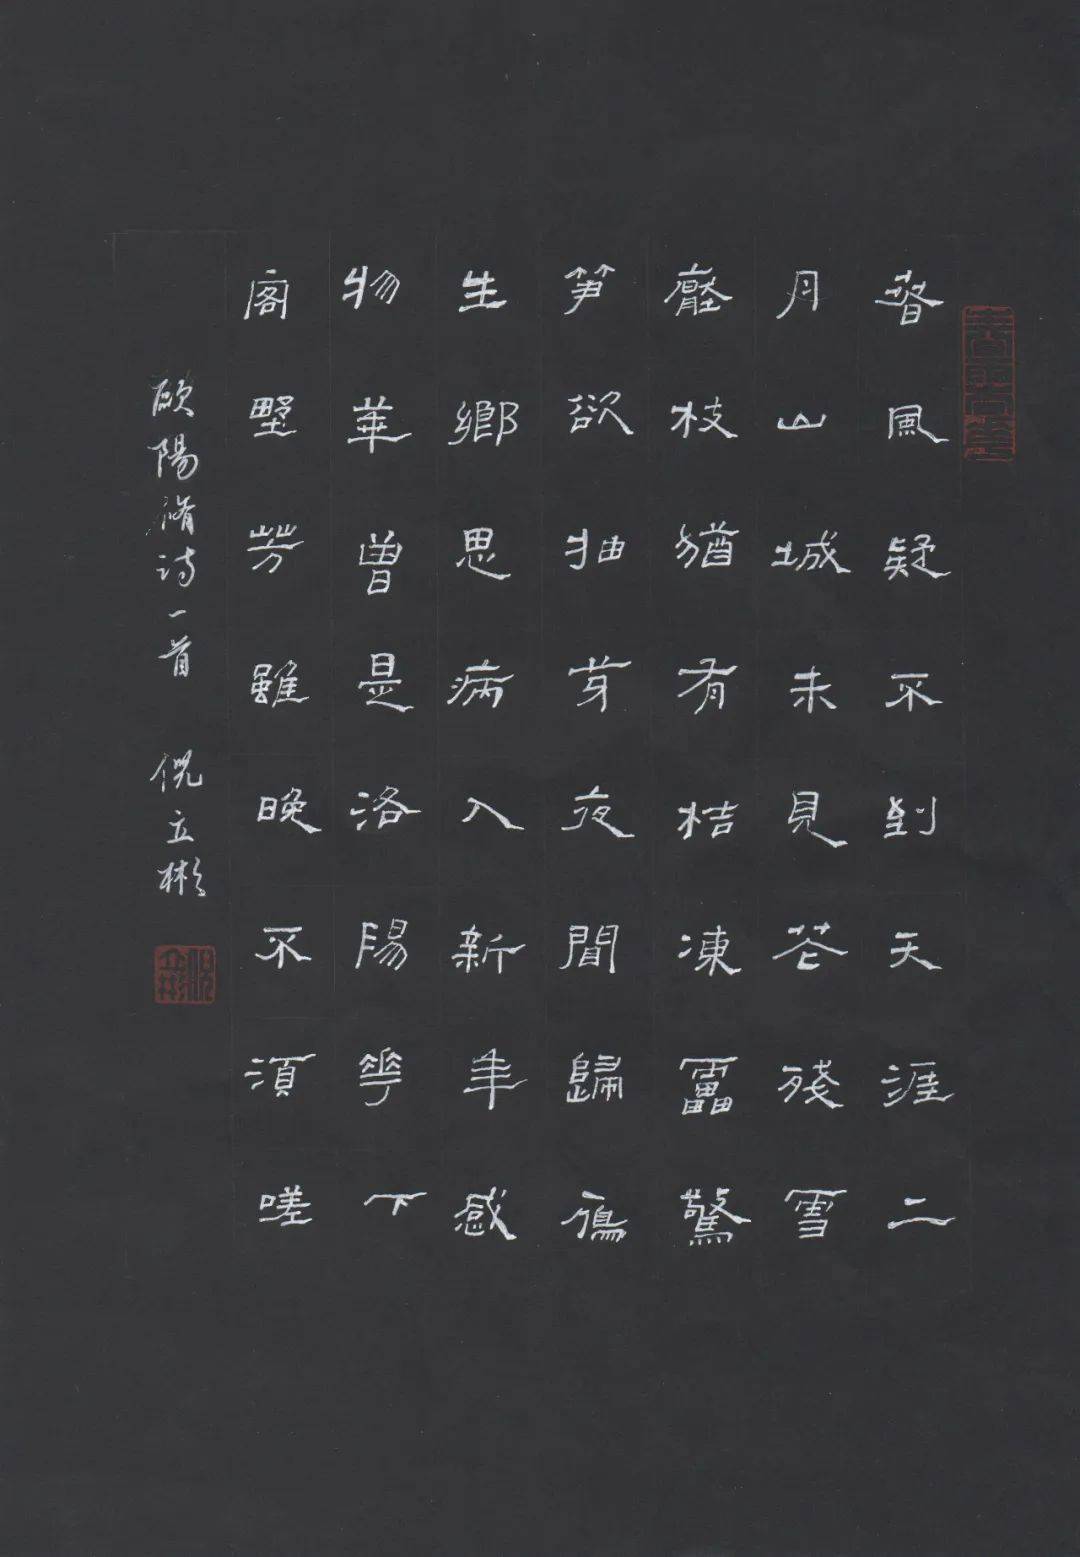 春風疑不到天涯二
月山城未見花殘雪
壓枝猶有桔凍雷驚
笋欲抽芽夜聞歸鴈
生鄉思病入新年感
物華曾是洛陽花下
客野芳雖晚不須嗟
歐陽脩詩一首 倪立彬
倪立彬